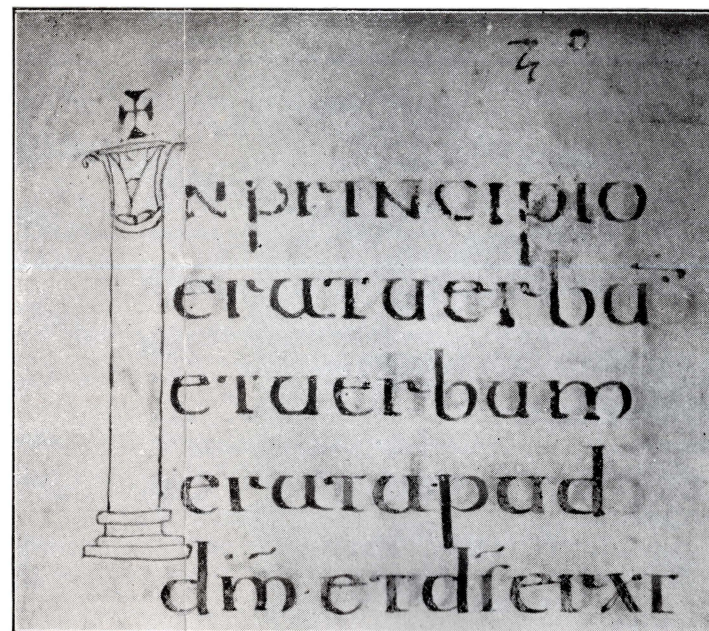 In principio
erat uerbū
et uerbum
erat apud
dm̄ et ds̄ erat